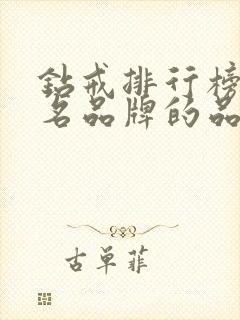 钻戒排行榜
名品牌的品
古单菲